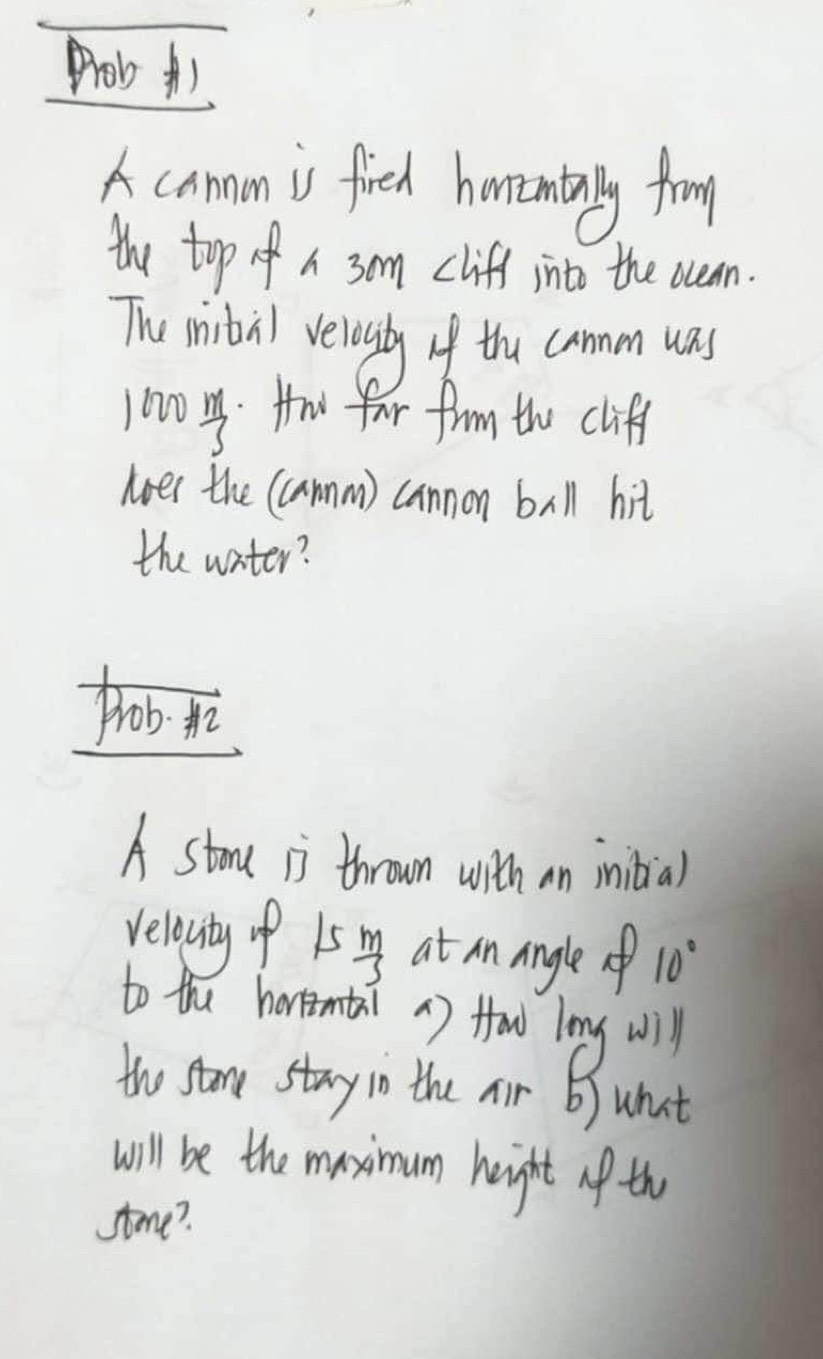 Prob #1
A cannon is fired horizontally from
the top of a 30m cliff into the ocean.
The initial velocity of the cannon was
1000 m/s. How far from the cliff
does the (cannon) cannon ball hit
the water?
Prob. #2
A stone is thrown with an initial
velocity of 15 m/s at an angle of 10°
to the horizontal a) How long will
the stone stay in the air b) what
will be the maximum height of the
stone?